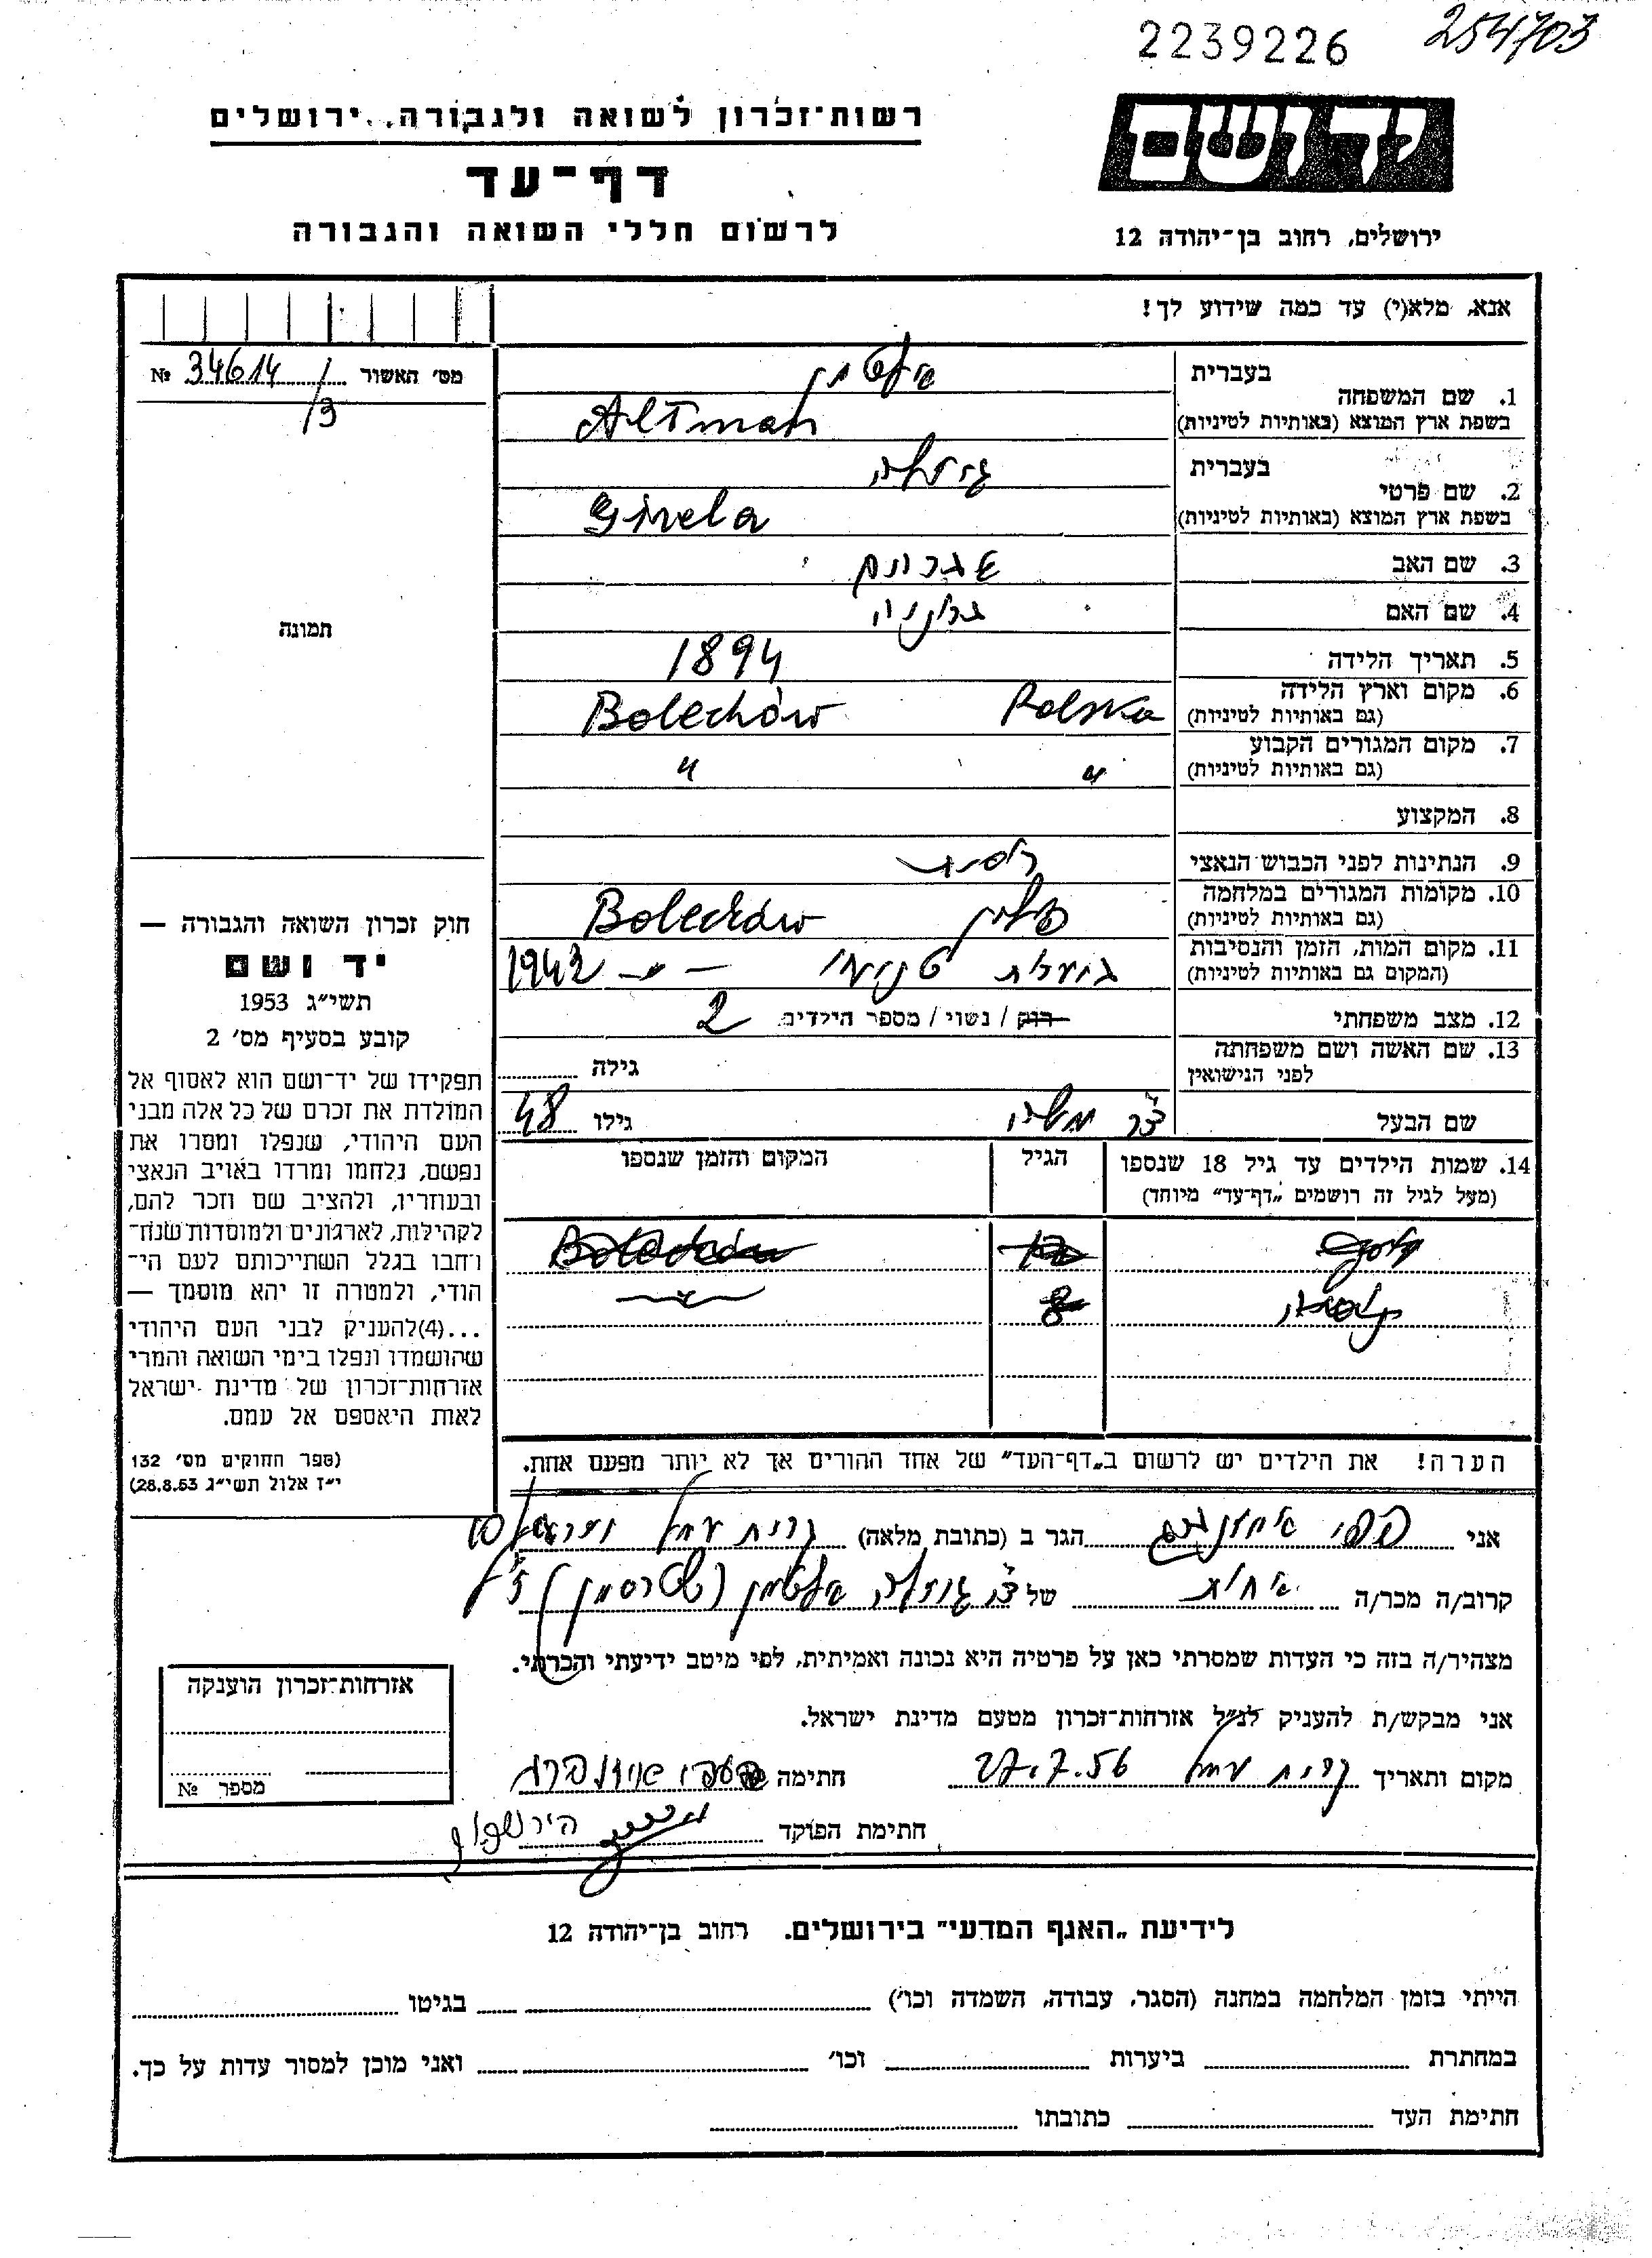 2239226
254703
רשות־זכרון לשואה ולגבורה, ירושלים
דף־עד
לרשום חללי השואה והגבורה
ידושם
ירושלים, רחוב בן־יהודה 12
אנא, מלא(י) עד כמה שידוע לך!
מס׳ האשור 34614/3 №
תמונה
1. שם המשפחה
בעברית אלטמן
בשפת ארץ המוצא (באותיות לטיניות) Altman
2. שם פרטי
בעברית גיזלה
בשפת ארץ המוצא (באותיות לטיניות) Gizela
3. שם האב
4. שם האם
5. תאריך הלידה 1894
6. מקום וארץ הלידה Bolechów Polska
(גם באותיות לטיניות)
7. מקום המגורים הקבוע " "
(גם באותיות לטיניות)
8. המקצוע
9. הנתינות לפני הכבוש הנאצי
10. מקומות המגורים במלחמה פולין Bolechów
(גם באותיות לטיניות)
11. מקום המות, הזמן והנסיבות
(המקום גם באותיות לטיניות)
12. מצב משפחתי רוק / נשוי / מספר הילדים 2
13. שם האשה ושם משפחתה
לפני הנישואין גילה
שם הבעל ד״ר משה גילו 48
14. שמות הילדים עד גיל 18 שנספו
(מעל לגיל זה רושמים „דף־עד״ מיוחד)
הגיל
המקום והזמן שנספו
Bolechów
8
הערה! את הילדים יש לרשום ב„דף־העד״ של אחד ההורים אך לא יותר מפעם אחת.
חוק זכרון השואה והגבורה —
יד ושם
תשי״ג 1953
קובע בסעיף מס׳ 2
תפקידו של יד־ושם הוא לאסוף אל
המולדת את זכרם של כל אלה מבני
העם היהודי, שנפלו ומסרו את
נפשם, נלחמו ומרדו באויב הנאצי
ובעוזריו, ולהציב שם וזכר להם,
לקהילות, לארגונים ולמוסדות שנח־
רחבו בגלל השתייכותם לעם הי־
הודי, ולמטרה זו יהא מוסמך —
...(4)להעניק לבני העם היהודי
שהושמדו ונפלו בימי השואה והמרי
אזרחות־זכרון של מדינת ישראל
לאות היאספם אל עמם.
(ספר החוקים מס׳ 132
י״ז אלול תשי״ג 28.8.53)
אני הגר ב (כתובת מלאה)
קרוב/ה מכר/ה אחות של ד״ר גיזלה אלטמן
מצהיר/ה בזה כי העדות שמסרתי כאן על פרטיה היא נכונה ואמיתית, לפי מיטב ידיעתי והכרתי.
אני מבקש/ת להעניק לנ״ל אזרחות־זכרון מטעם מדינת ישראל.
מקום ותאריך 27.7.56 חתימה
חתימת הפוקד
אזרחות־זכרון הוענקה
מספר №
לידיעת „האגף המדעי״ בירושלים. רחוב בן־יהודה 12
הייתי בזמן המלחמה במחנה (הסגר, עבודה, השמדה וכו׳) בגיטו
במחתרת ביערות וכו׳ ואני מוכן למסור עדות על כך.
חתימת העד כתובתו